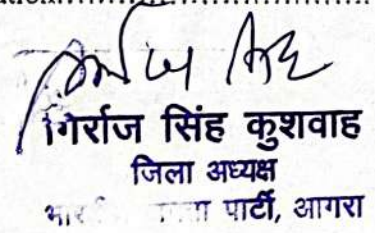 गिर्राज सिंह कुशवाह
जिला अध्यक्ष
पार्टी, आगरा